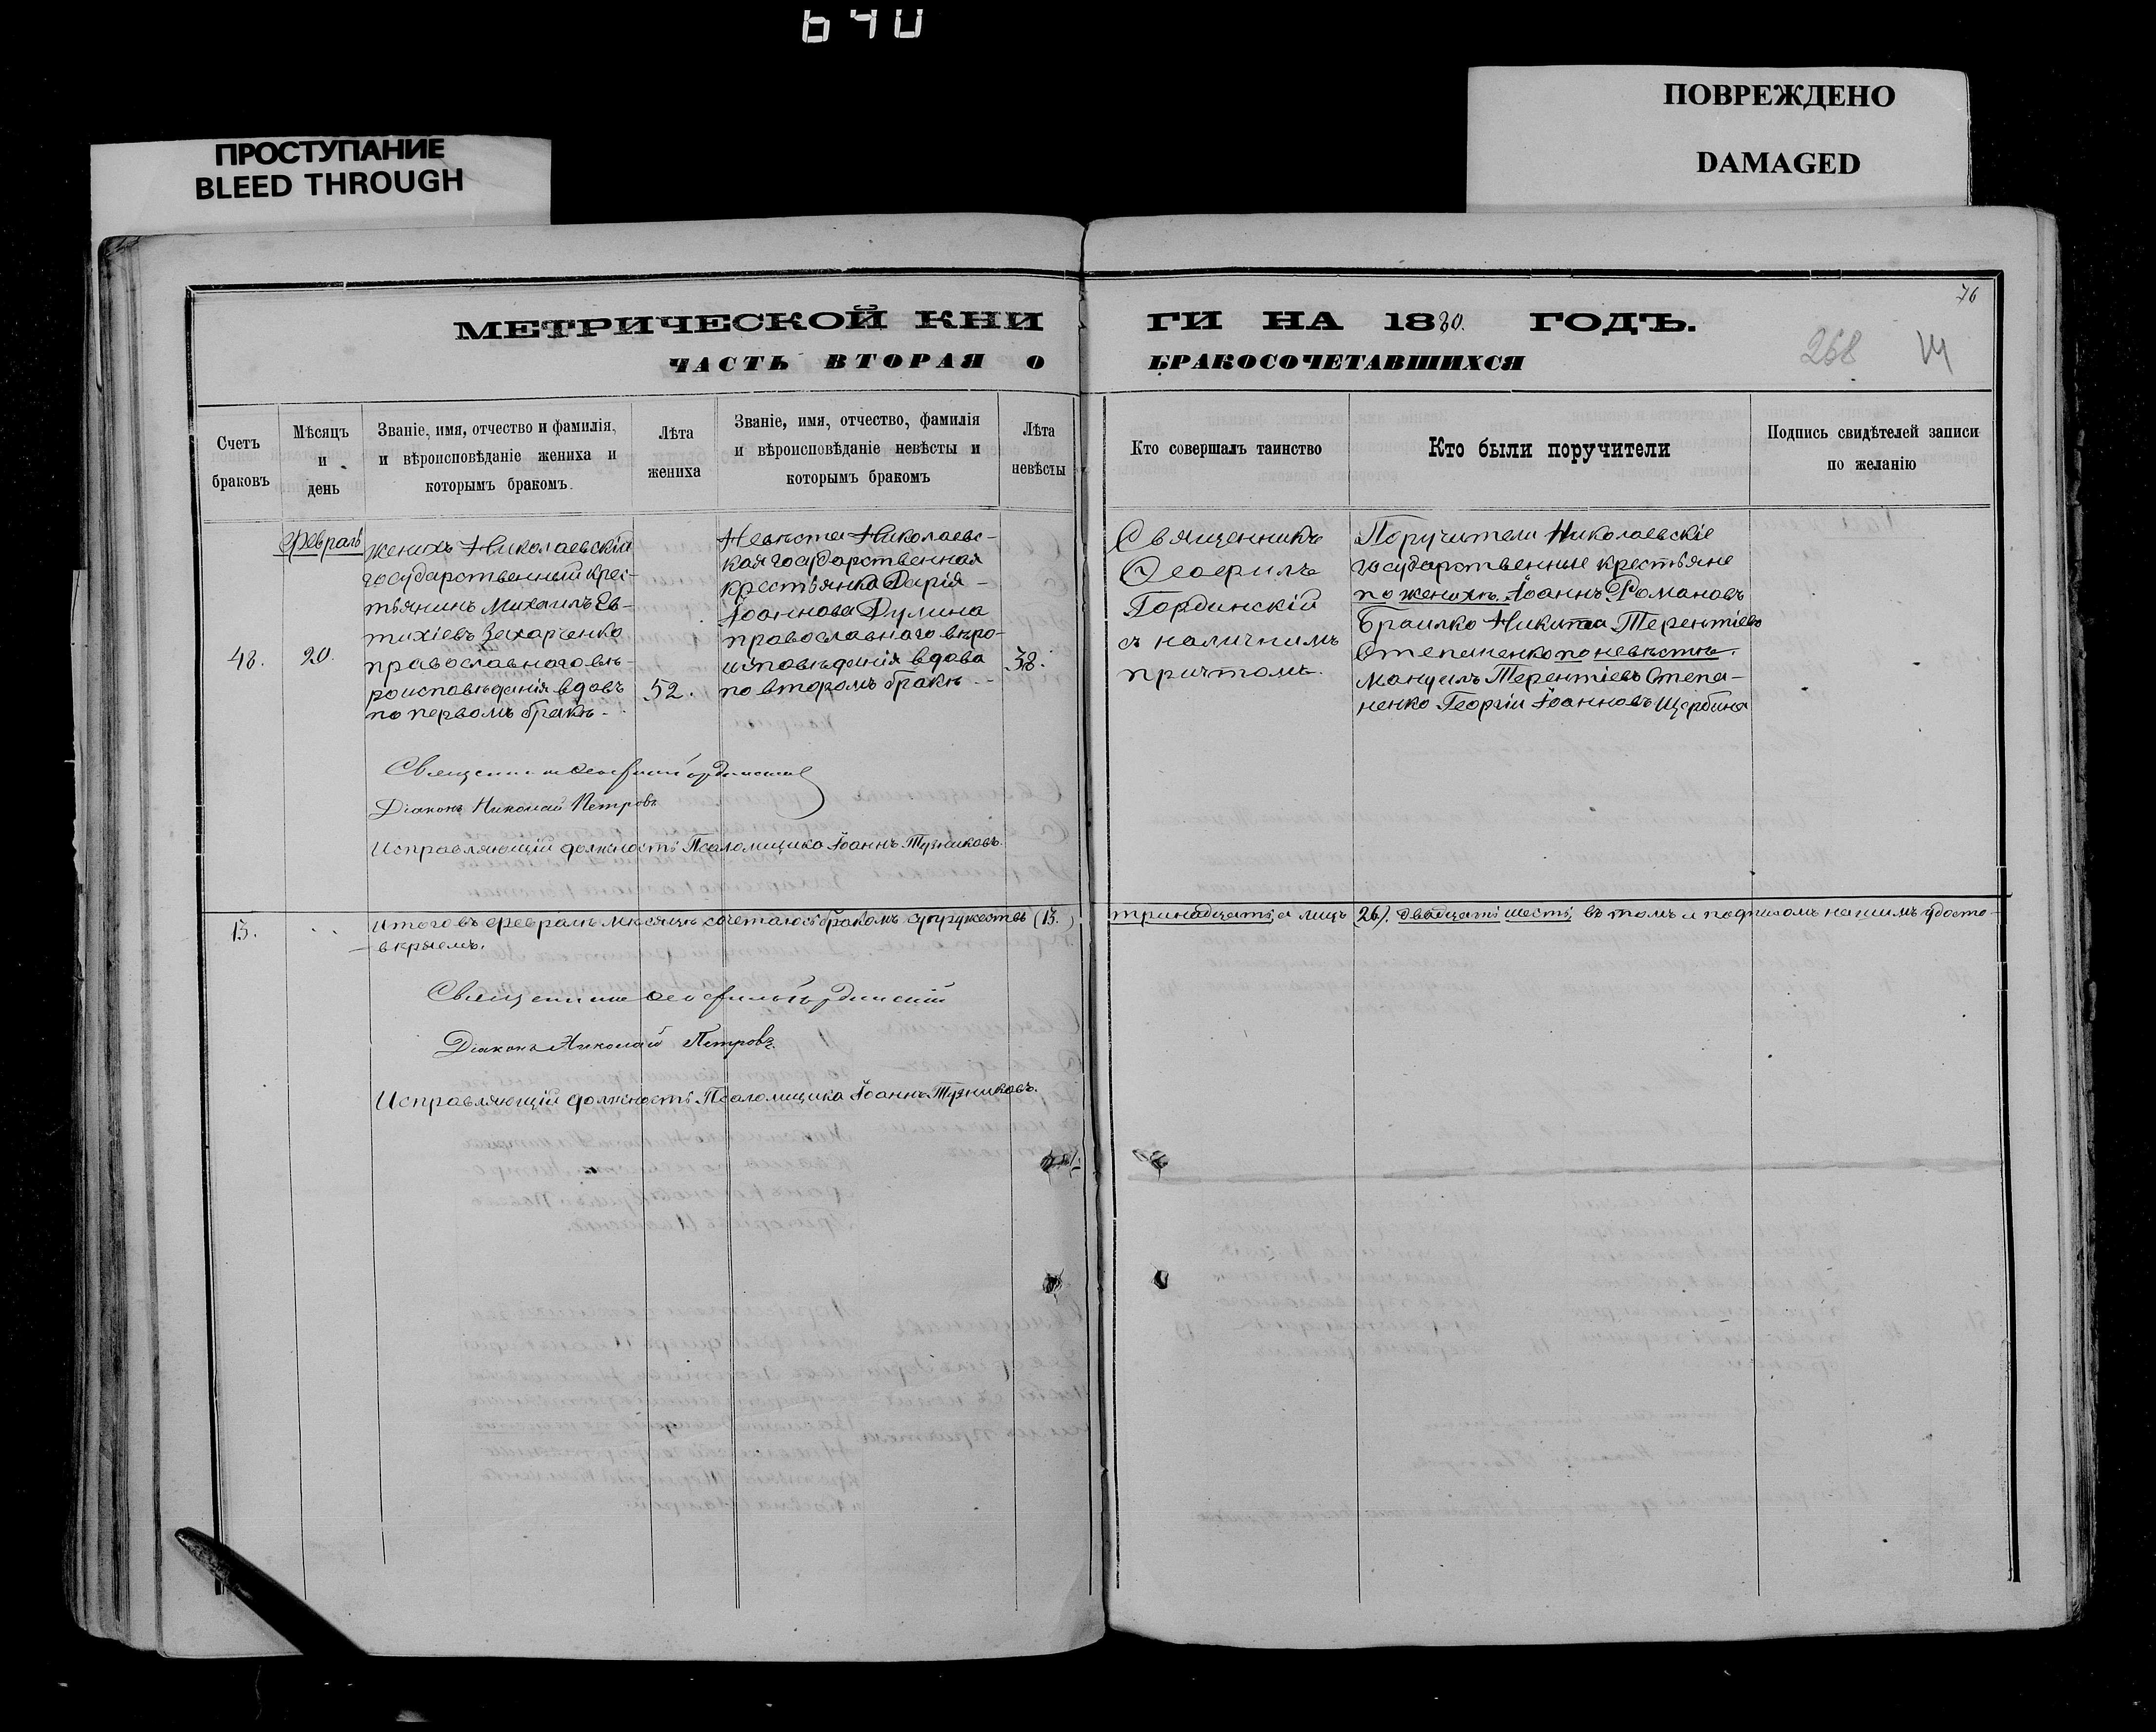 640
ПРОСТУПАНИЕ
BLEED THROUGH
ПОВРЕЖДЕНО
DAMAGED
76
МЕТРИЧЕСКОЙ КНИ ГИ НА 1880. ГОДЪ.
ЧАСТЬ ВТОРАЯ О БРАКОСОЧЕТАВШИХСЯ
268
Счетъ браковъ
Мѣсяцъ и день
Званіе, имя, отчество и фамилія,
и вѣроисповѣданіе жениха и
которымъ бракомъ.
Лѣта жениха
Званіе, имя, отчество, фамилія
и вѣроисповѣданіе невѣсты и
которымъ бракомъ
Лѣта невѣсты
Кто совершалъ таинство
Кто были поручители
Подпись свидѣтелей записи
по желанію
48.
Февраль
20.
Женихъ Николаевскій
государственный крес-
тьянинъ Михаилъ Ев-
тихіевъ Захарченко
православнаго вѣ-
роисповѣданія вдовъ
по первомъ бракѣ.
52.
Невѣста Николаевс-
кая государственная
крестьянка Дарія
Іоаннова Дулина
православнаго вѣро-
исповѣданія вдова
по второмъ бракѣ.
38.
Священникъ
Ѳеофилъ
Гординскій
съ наличнымъ
причтомъ.
Поручители Николаевскіе
государственные крестьяне
по женихѣ. Іоаннъ Романовъ
Браилко Никита Терентіевъ
Степаненко по невѣстѣ.
Мануилъ Терентіевъ Степа-
ненко Георгій Іоанновъ Щербина
Священникъ Ѳеофилъ Гординскій
Діаконъ Николай Петровъ
Исправляющій должность Псаломщика Іоаннъ Тузниковъ.
13.
Итого въ Февралѣ мѣсяцѣ сочеталось бракомъ супружествъ (13.) тринадцать, а лицъ (26). двадцать шесть, въ томъ и подписомъ нашимъ удосто-
вѣряемъ.
Священникъ Ѳеофилъ Гординскій
Діаконъ Николай Петровъ.
Исправляющій должность Псаломщика Іоаннъ Тузниковъ.